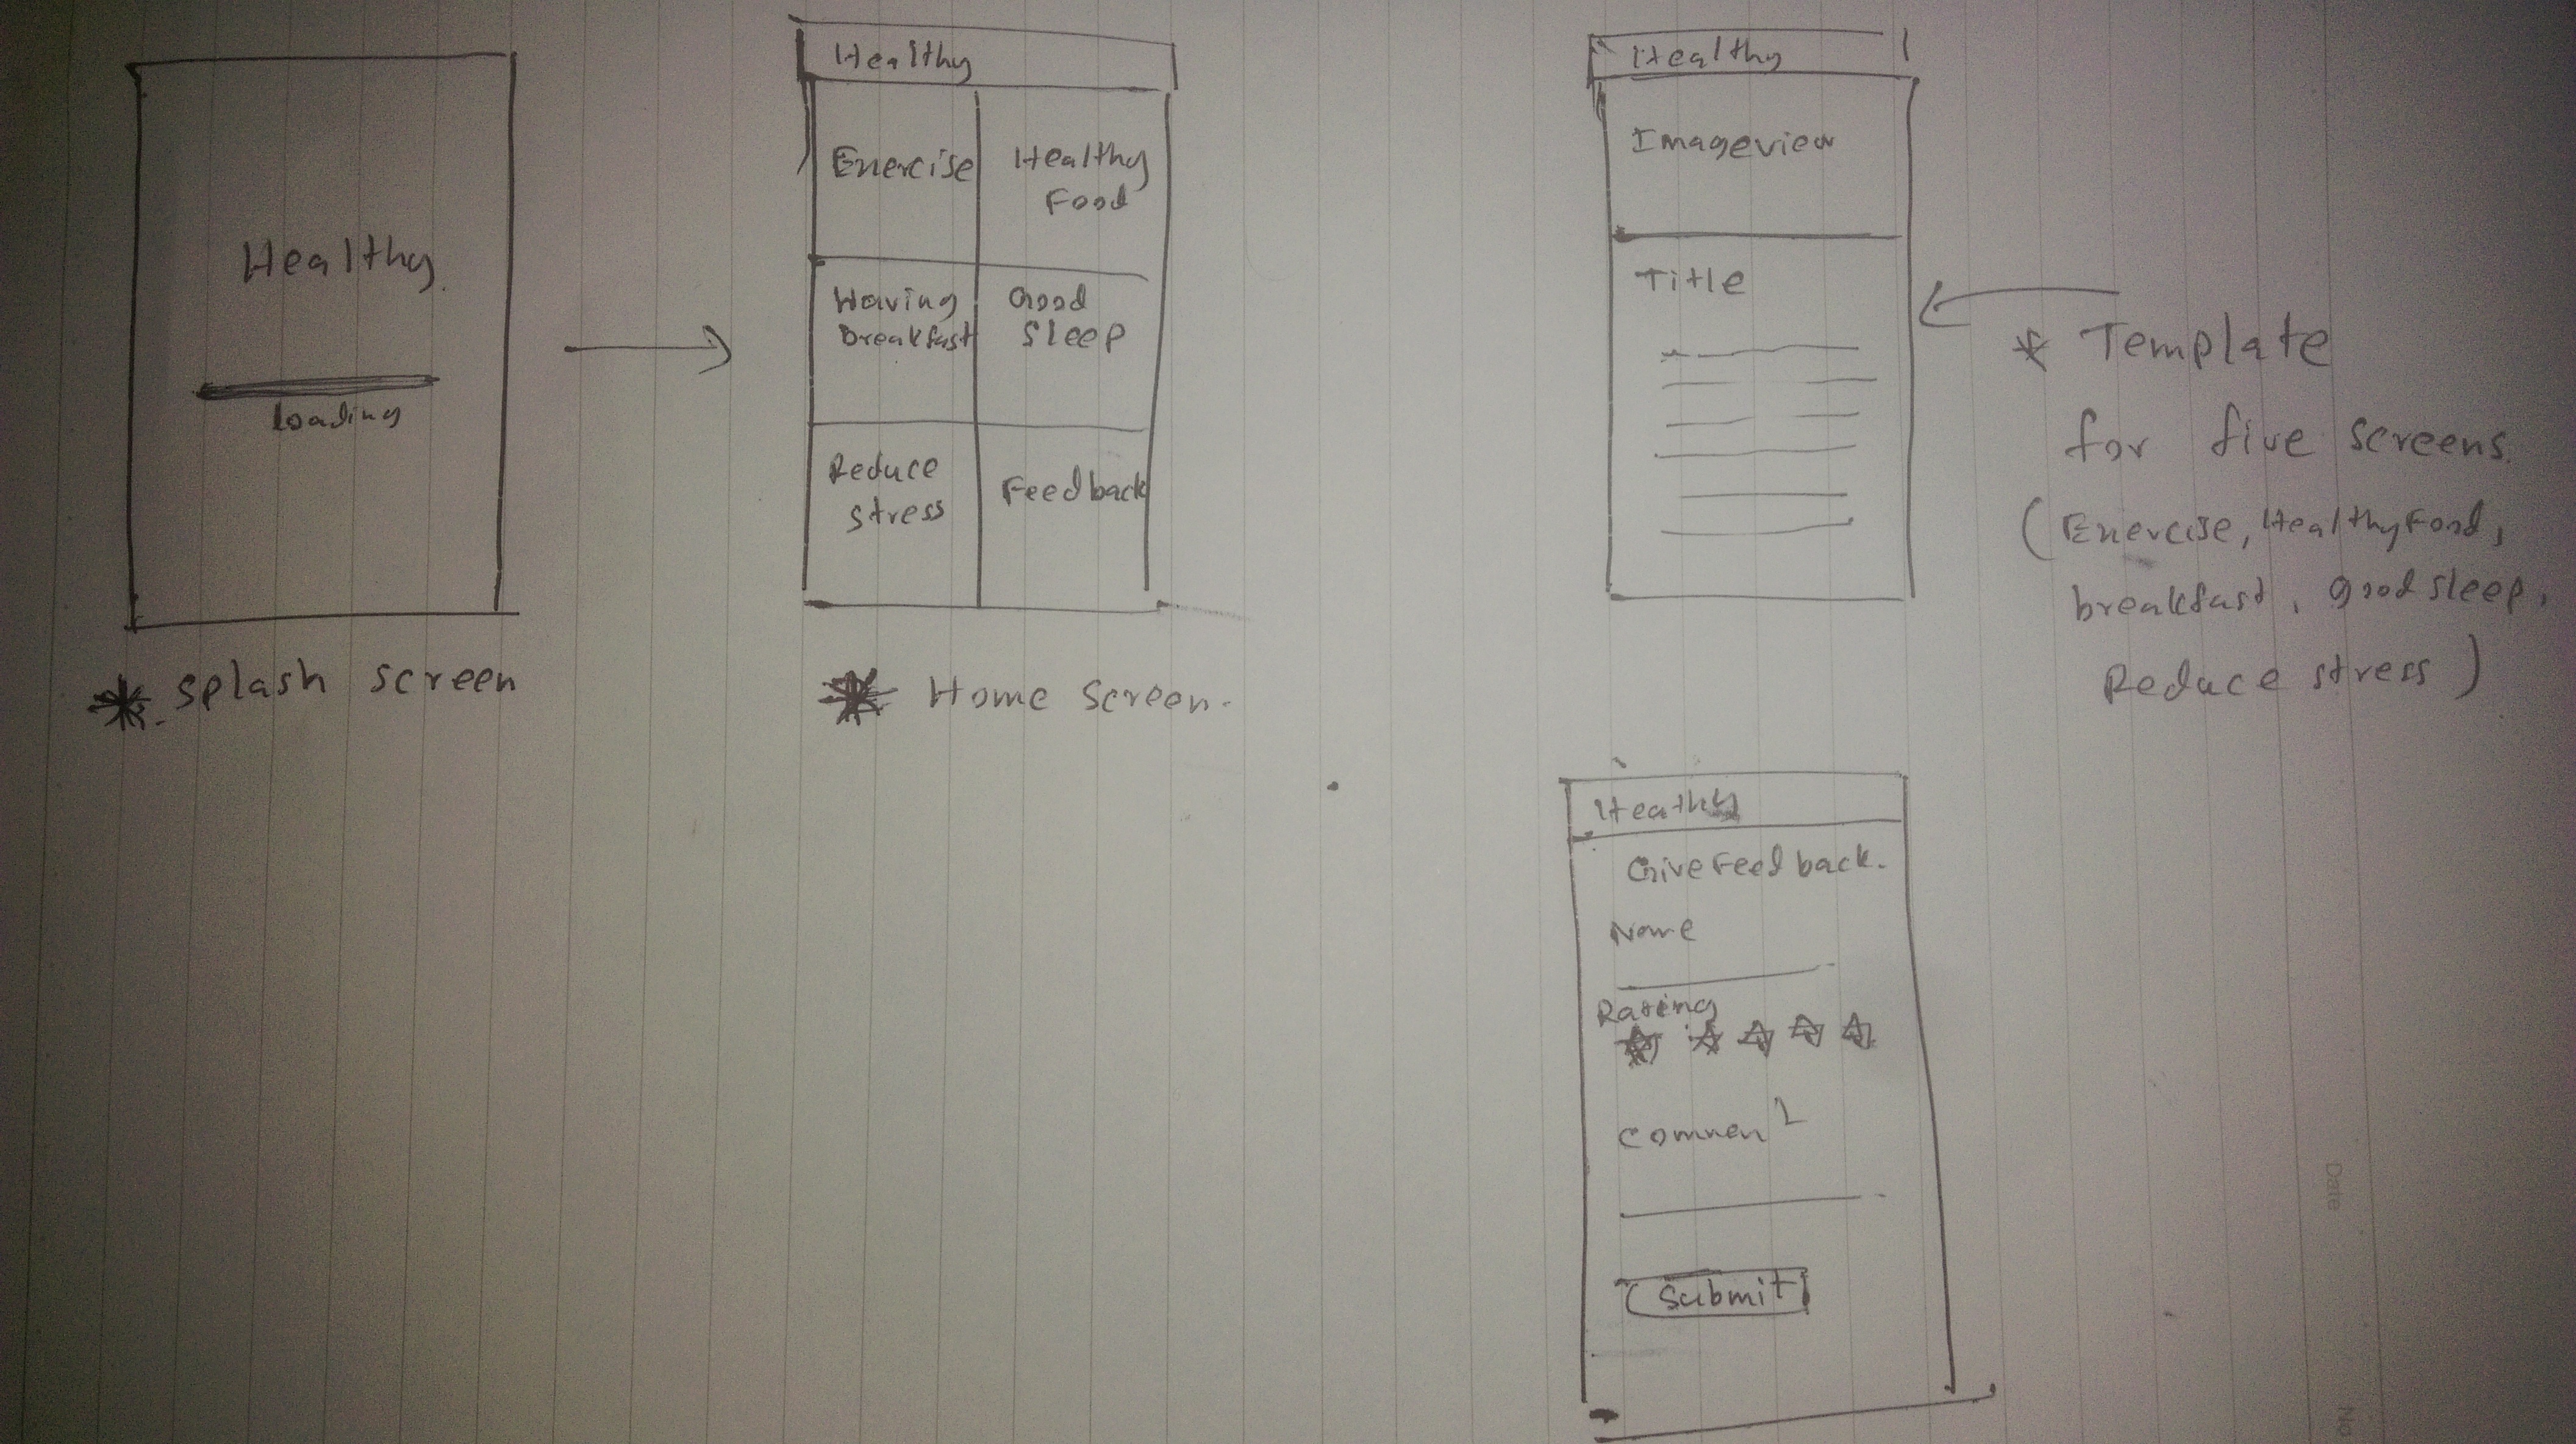 Healthy
loading
* splash screen
Healthy
Exercise
Healthy
Food
Having
breakfast
Good
Sleep
Reduce
stress
Feedback
* Home Screen.
Healthy
Imageview
Title
* Template
for five screens.
(Exercise, Healthy Food,
breakfast, good sleep,
Reduce stress)
Heathy
Give Feedback.
Name
Rating
Comment
Submit
Date
No